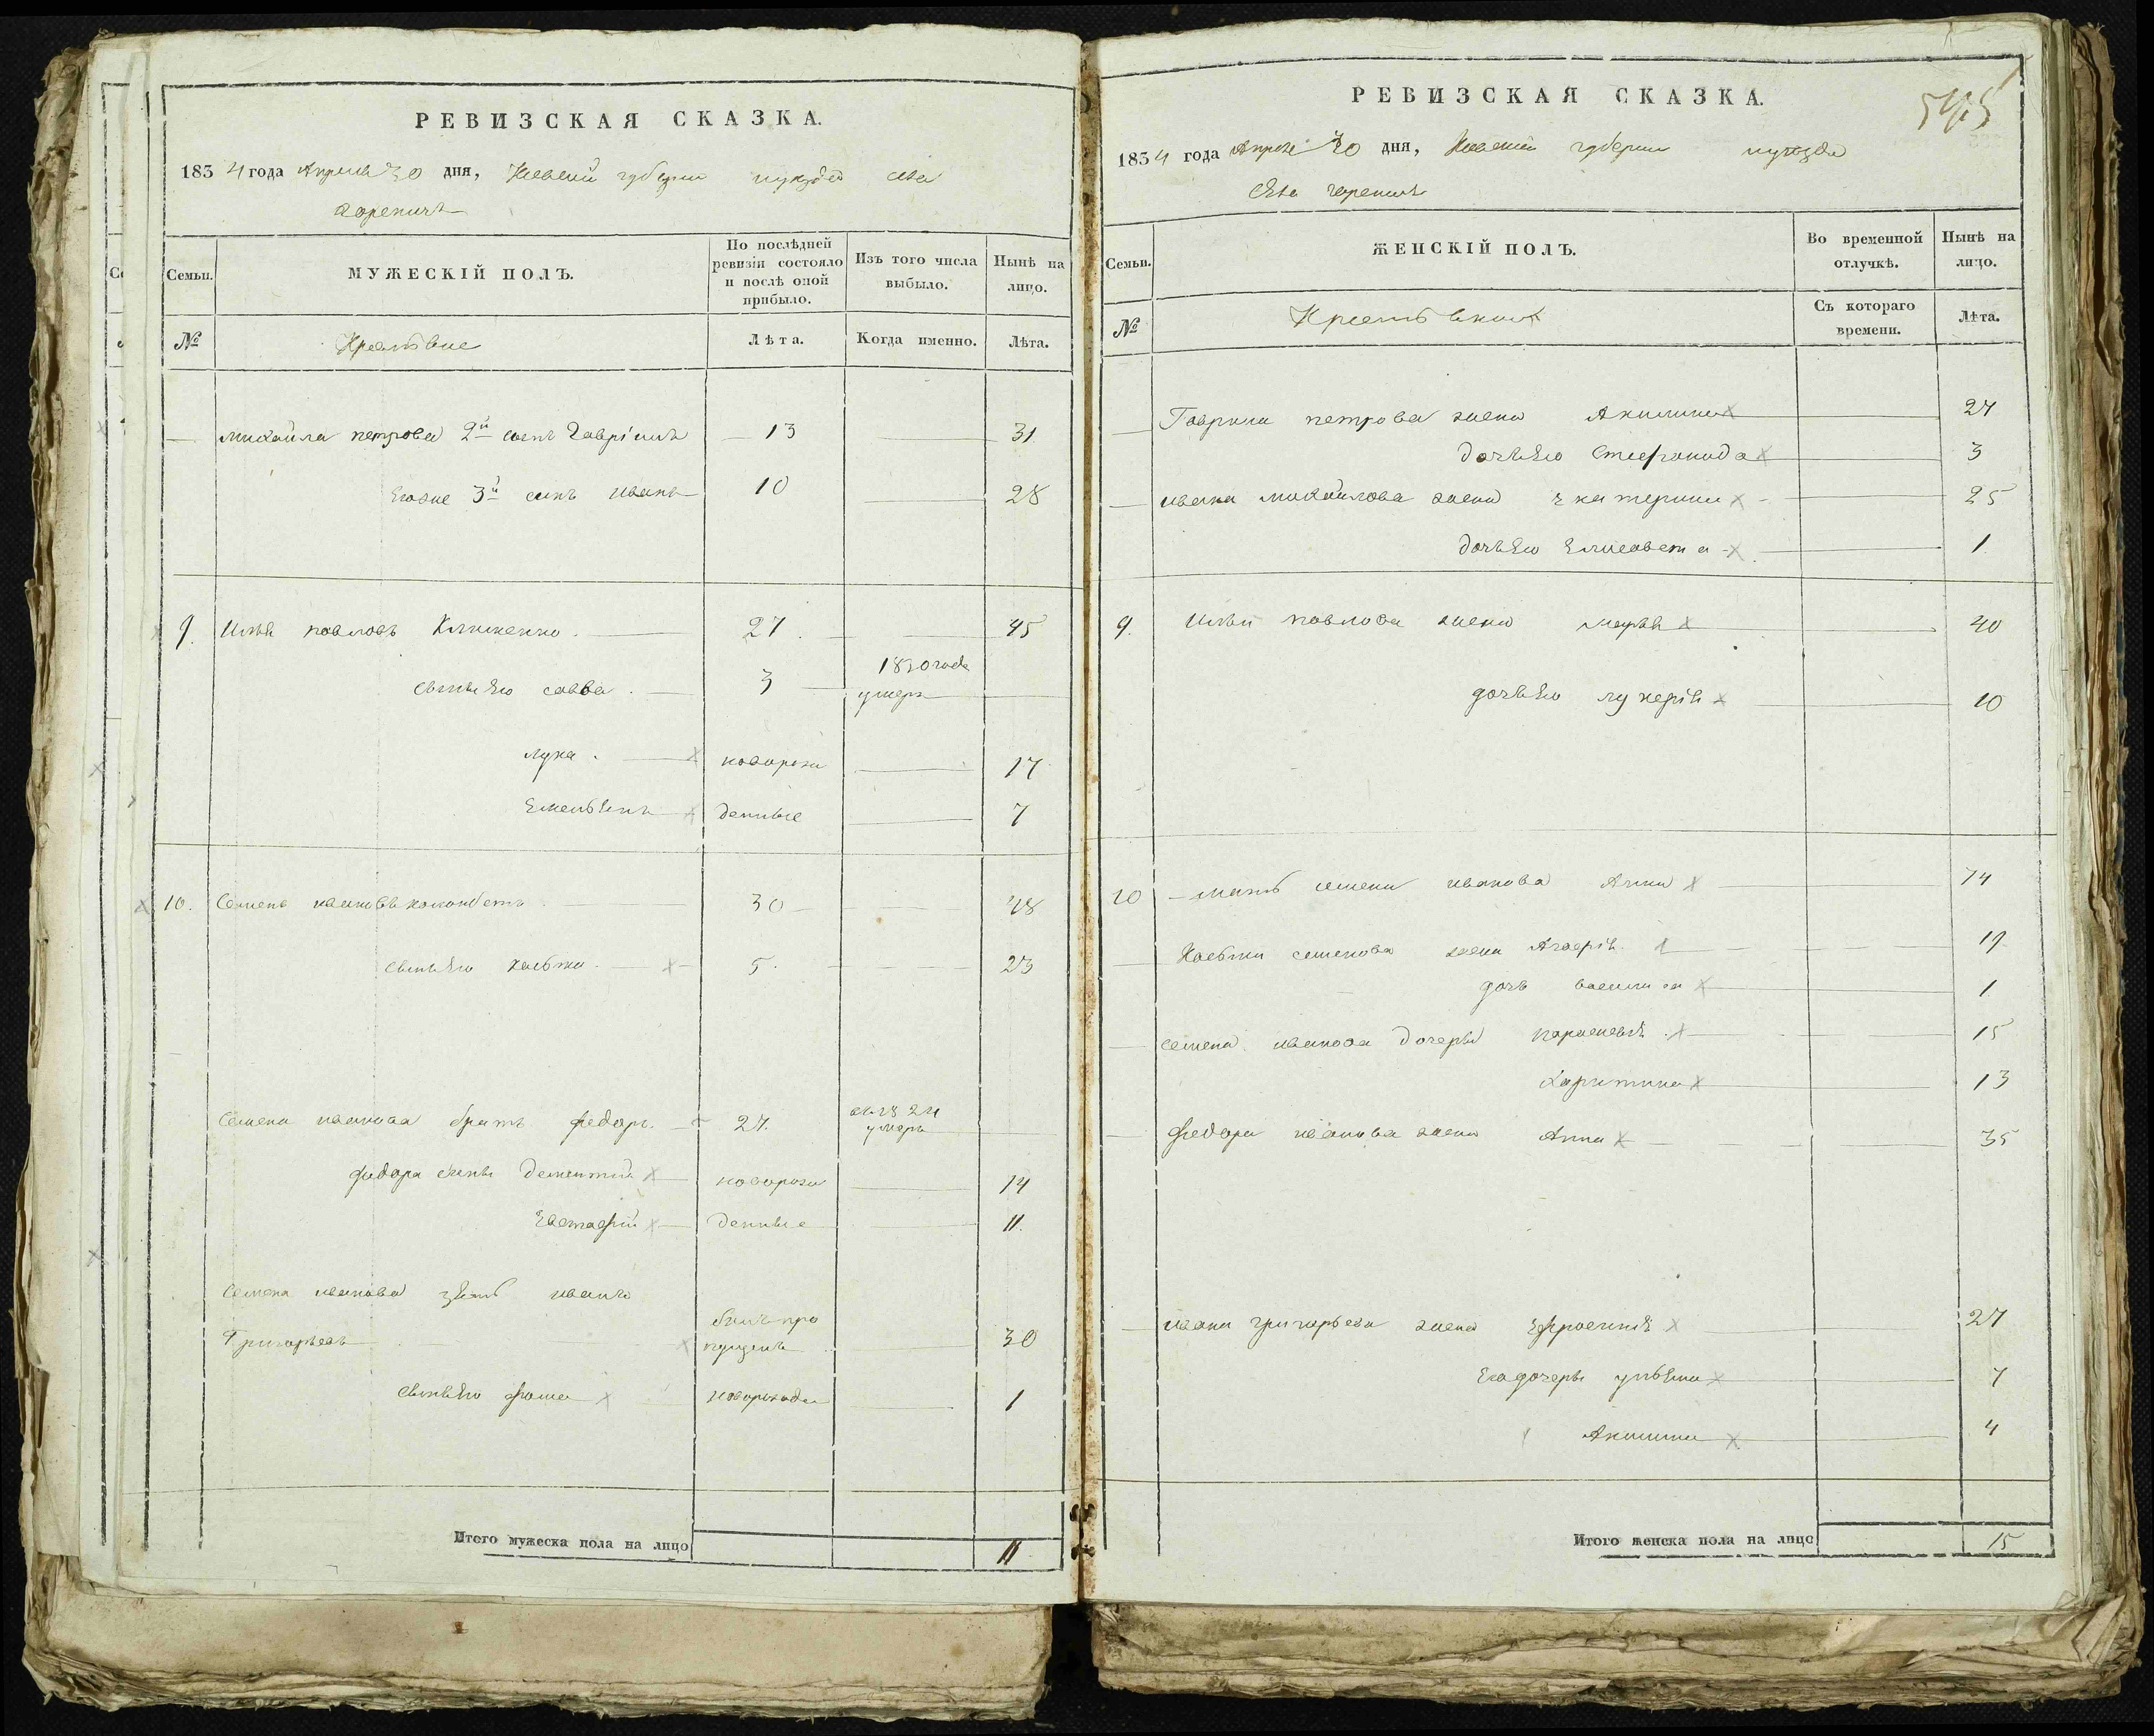 РЕВИЗСКАЯ СКАЗКА.
1834 года Апреля 30 дня, Киевской губернии и уезда села
Горенич
Семьи.
МУЖЕСКІЙ ПОЛЪ.
По послѣдней ревизіи состояло и послѣ оной прибыло.
Изъ того числа выбыло.
Нынѣ на лицо.
№
Лѣта.
Когда именно.
Лѣта.
михайла петрова 2й сынъ Гавріилъ 13 31
Егоже 3й сынъ иванъ 10 28
9. Илья павловъ Клименко. 27. 45
сынъ Его савва. 3 1830 года умеръ
лука. новорож 17
Емельянъ денные 7
10. Семенъ ивановъ 30 48
сынъ Его 5. 23
Семена иванова братъ федоръ. 27. 1824 умеръ
федора сыны Дементий новорож 14
Евстафий денные 11.
Семена иванова зять иванъ
Григорьевъ былъ про пущенъ 30
сынъ Его фома новорожден 1
Итого мужеска пола на лицо 11
РЕВИЗСКАЯ СКАЗКА.
545
1834 года Апреля 30 дня, Киевской губернии и уезда
села Горенич
Семьи.
ЖЕНСКІЙ ПОЛЪ.
Во временной отлучкѣ.
Нынѣ на лицо.
№
Съ котораго времени.
Лѣта.
Гаврила петрова жена Акилина 27
дочь Его Стефанида 3
ивана михайлова жена Екатерина 25
дочь Его Елисавета 1
9. Ильи павлова жена марья 40
дочь Его лукерія 10
10 мать семена иванова Анна 74
семенова жена 19
дочь василиса 1
семена иванова дочеры параскевія. 15
Харитина 13
федора иванова жена Анна 35
ивана григорьева жена Ефросинія 27
Его дочеры ульяна 7
Акилина 4
Итого женска пола на лицо 15